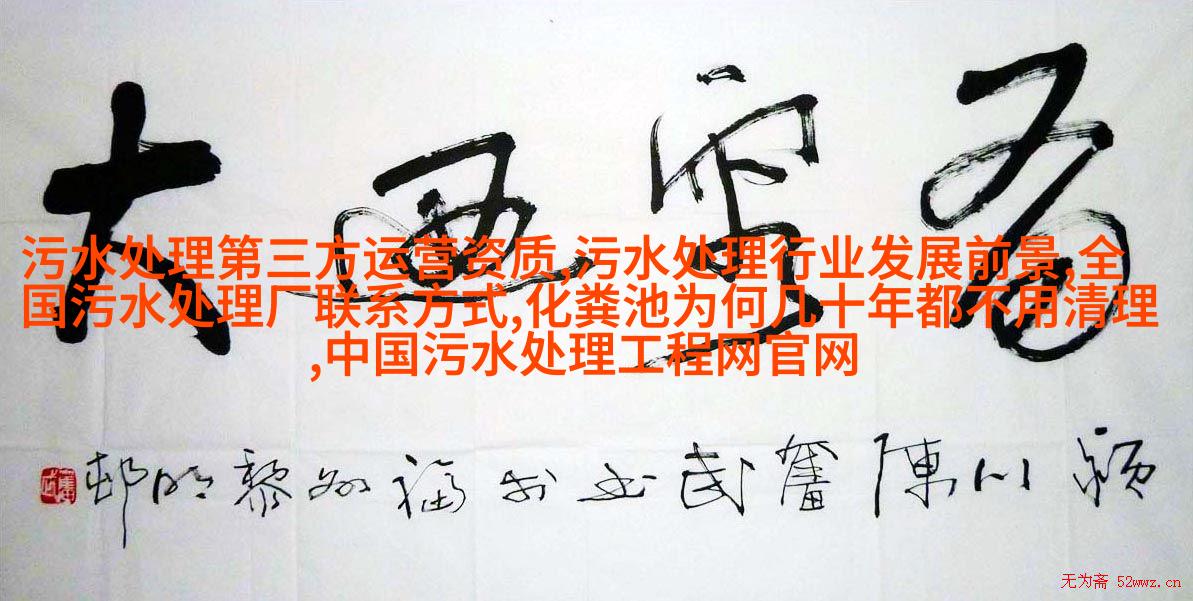 大
污水处理第三方运营资质,污水处理行业发展前景,全
国污水处理厂联系方式,化粪池为何几十年都不用清理
,中国污水处理工程网官网
颍川陳奮武书於福州黎明邨
无为斋 52wwz.cn